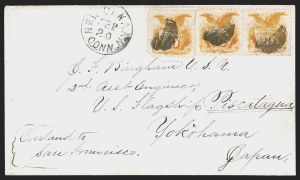 FEB
20
CONN.
C. F. Bingham U.S.N.
2d Asst Engineer
U.S. Flagship Piscataqua
Yokohama
Japan.
Overland to
San Francisco.